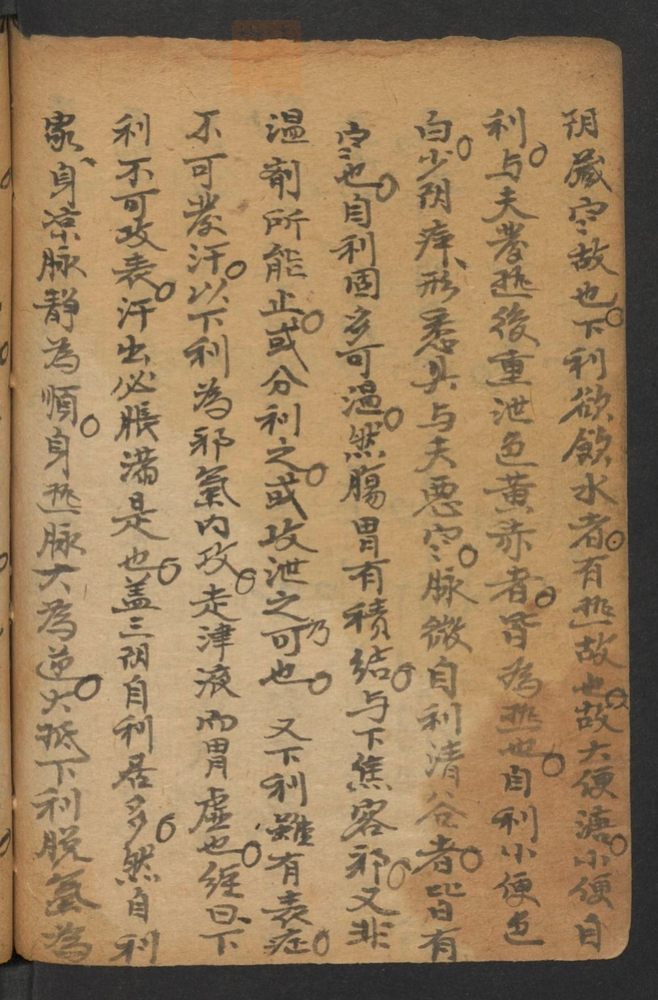 阴藏寒故也下利欲飲水者有热故也故大便溏小便自
利与夫發热後重泄色黄赤者皆為热也自利小便色
白少阴病形悉具与夫恶寒脉微自利清谷者皆有
寒也自利固多可溫然腸胃有積結与下焦客邪又非
溫剤所能止或分利之或攻泄之乃可也又下利雖有表症
不可發汗以下利為邪氣內攻走津液而胃虚也經曰下
利不可攻表汗出必脹滿是也盖三阴自利居多然自利
家身凉脉静為順身热脉大為逆大抵下利脱氣為